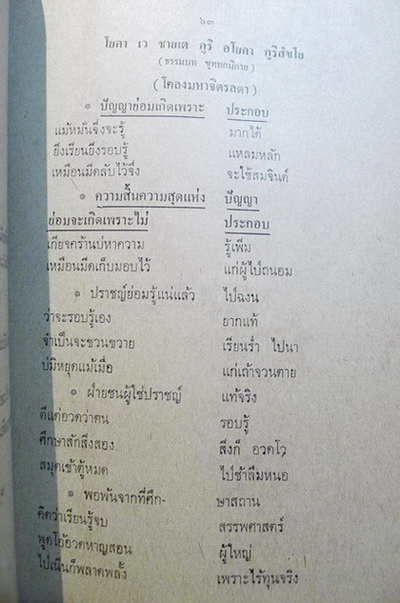 ๖๓
โยคา เว ชายเต ภูริ อโยคา ภูริสํขโย
( ธรรมบท ขุททกนิกาย )
( โคลงมหาจิตรลดา )
๏ ปัญญาย่อมเกิดเพราะ ประกอบ
แม้หมั่นจึ่งจะรู้ มากได้
ยิ่งเรียนยิ่งรอบรู้ แหลมหลัก
เหมือนมีดลับไว้จึ่ง จะใช้สมจินต์
๏ ความสิ้นความสุดแห่ง ปัญญา
ย่อมจะเกิดเพราะไม่ ประกอบ
เกียจคร้านบ่หาความ รู้เพิ่ม
เหมือนมีดเก็บมอบไว้ แก่ผู้ไป่ถนอม
๏ ปราชญ์ย่อมรู้แน่แล้ว ไป่ฉงน
ว่าจะรอบรู้เอง ยากแท้
จำเป็นจะขวนขวาย เรียนร่ำ ไปนา
บ่มิหยุดแม้เมื่อ แก่เถ้าจวนตาย
๏ ฝ่ายชนผู้ใช่ปราชญ์ แท้จริง
ดีแต่อวดว่าตน รอบรู้
ศึกษาสักสิ่งสอง สิ่งก็ อวดโว
สมุดเข้าตู้หมด ไป่ช้าลืมหนอ
๏ พอพ้นจากที่ศึก- ษาสถาน
คิดว่าเรียนรู้จบ สรรพศาสตร์
พูดโอ้อวดหาญสอน ผู้ใหญ่
ไป่เนิ่นก็พลาดพลั้ง เพราะไร้ทุนจริง